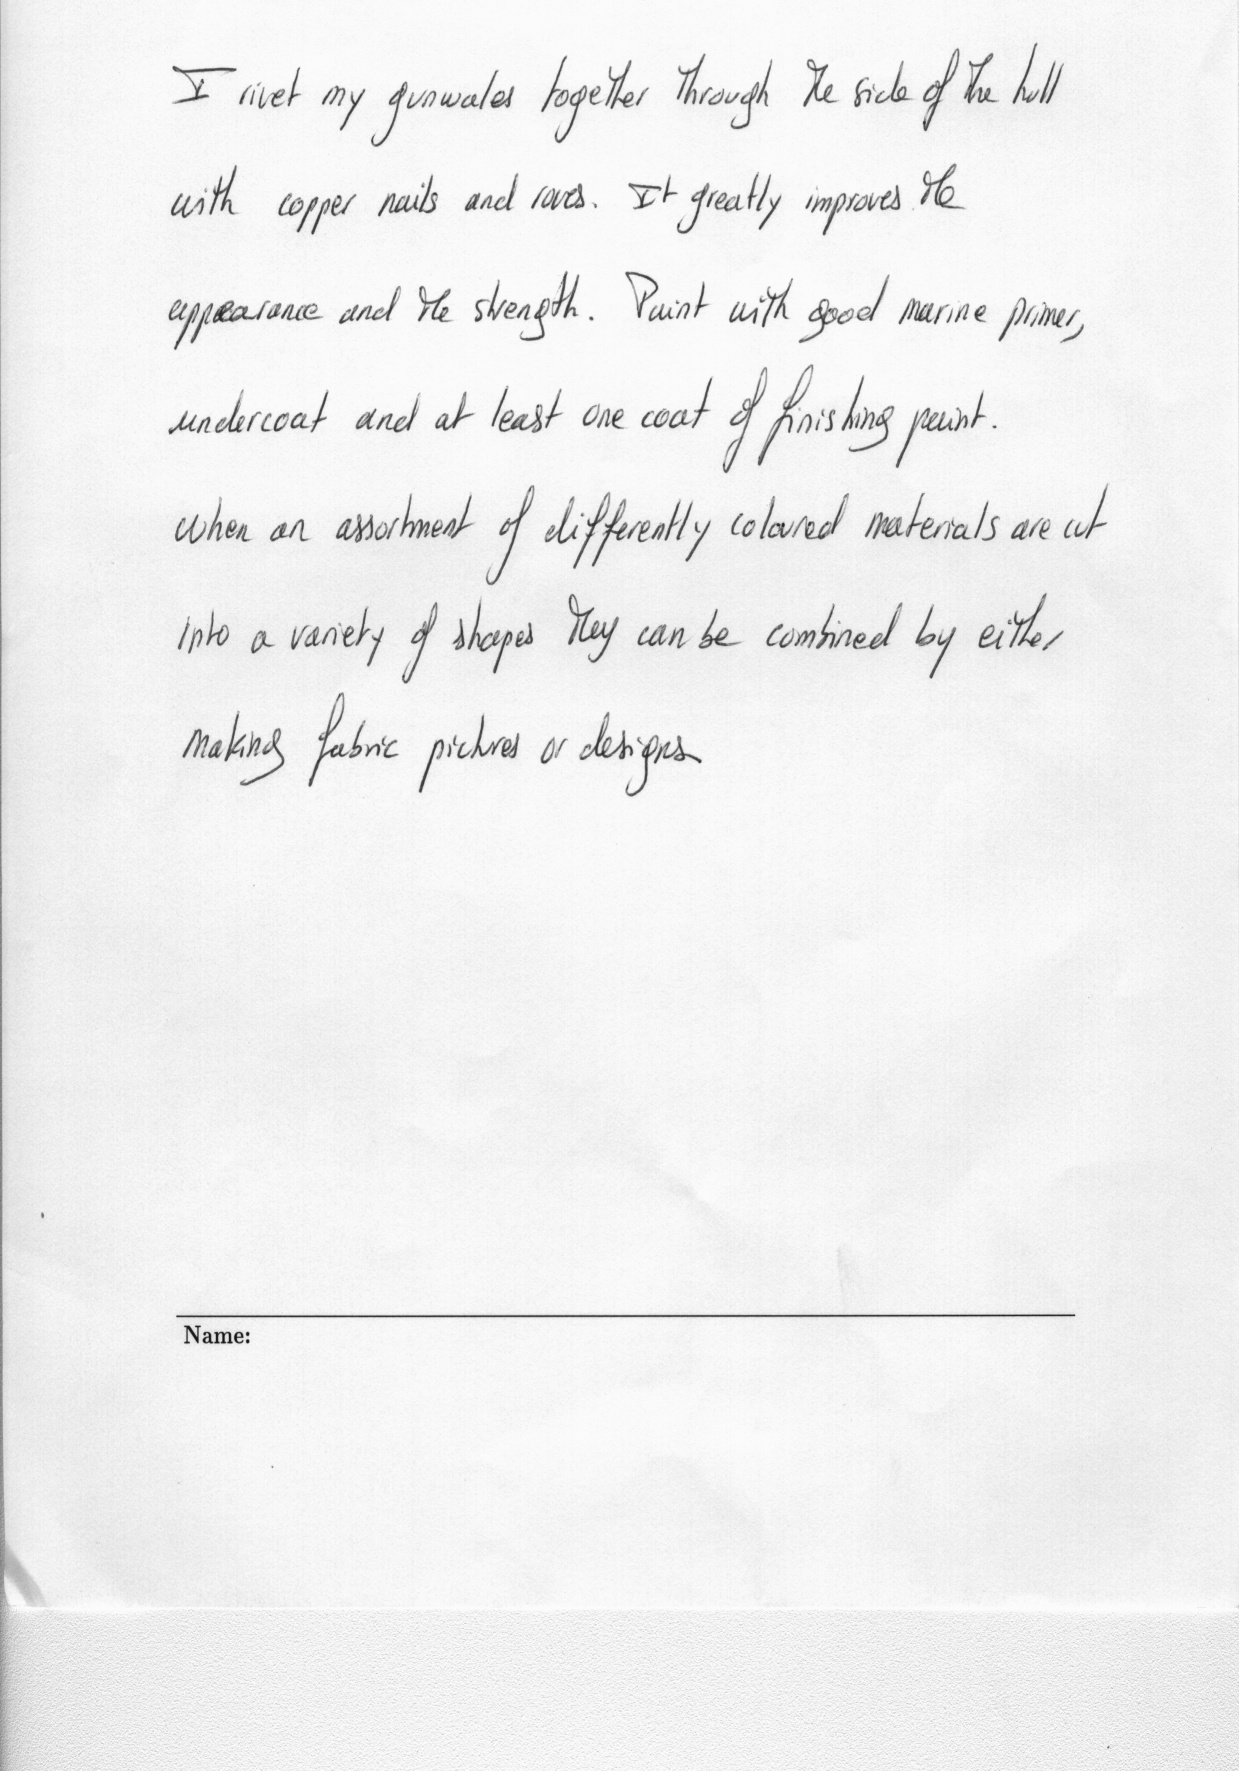 I rivet my gunwales together through the side of the hull
with copper nails and roves. It greatly improves the
appearance and the strength. Paint with good marine primer,
undercoat and at least one coat of finishing paint.
When an assortment of differently coloured materials are cut
into a variety of shapes they can be combined by either
making fabric pictures or designs
Name: